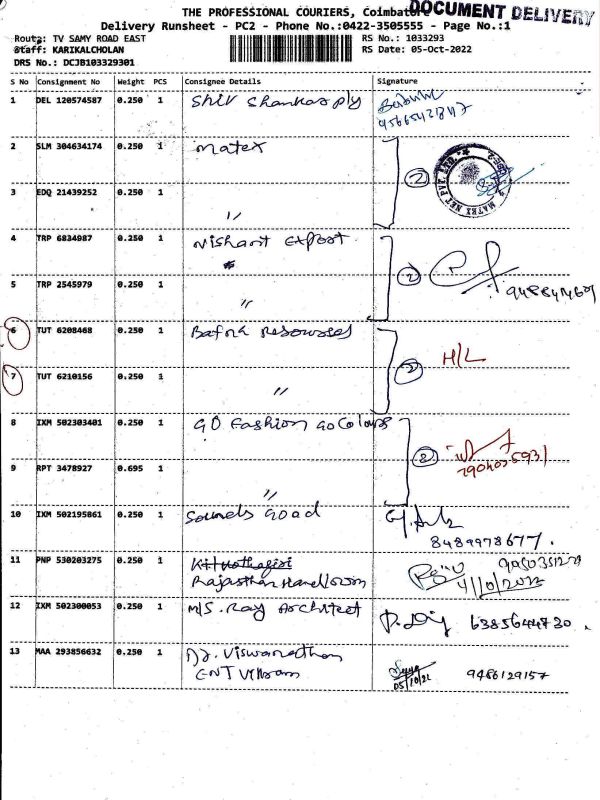 DOCUMENT DELIVERY
THE PROFESSIONAL COURIERS, Coimbatore
Delivery Runsheet - PC2 - Phone No.:0422-3505555 - Page No.:1
Route: TV SAMY ROAD EAST
Staff: KARIKALCHOLAN
DRS No.: DCJB103329301
RS No.: 1033293
RS Date: 05-Oct-2022
S No Consignment No Weight PCS Consignee Details Signature
1 DEL 120574587 0.250 1 Shiv Shankar ply
2 SLM 304634174 0.250 1 Matex 2
MATEX NET PVT. LTD.
3 EDQ 21439252 0.250 1 "
4 TRP 6834987 0.250 1 Nishant Export 2
5 TRP 2545979 0.250 1 "
6 TUT 6208468 0.250 1 Bafna Resourses
7 TUT 6210156 0.250 1 " 2 H/L
8 IXM 502303401 0.250 1 GO Fashion Go Colours
9 RPT 3478927 0.695 1 " 2
10 IXM 502195861 0.250 1 Sounds Good
8489978677.
11 PNP 530203275 0.250 1
Rajasthan Handloom 4/10/2022
12 IXM 502300053 0.250 1 M/S. Ray Architect 6385644730.
13 MAA 293856632 0.250 1 Dr. Viswanathan
ENT 05/10/22 9486129157